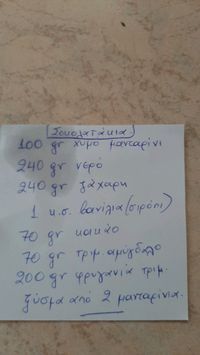 Σοκολατάκια
100 gr χυμό μανταρίνι
240 gr νερό
240 gr ζάχαρη
1 κ.σ. βανίλια (σιρόπι)
70 gr κακάο
70 gr τριμ. αμύγδαλο
200 gr φρυγανιά τριμ.
ξύσμα από 2 μανταρίνια.